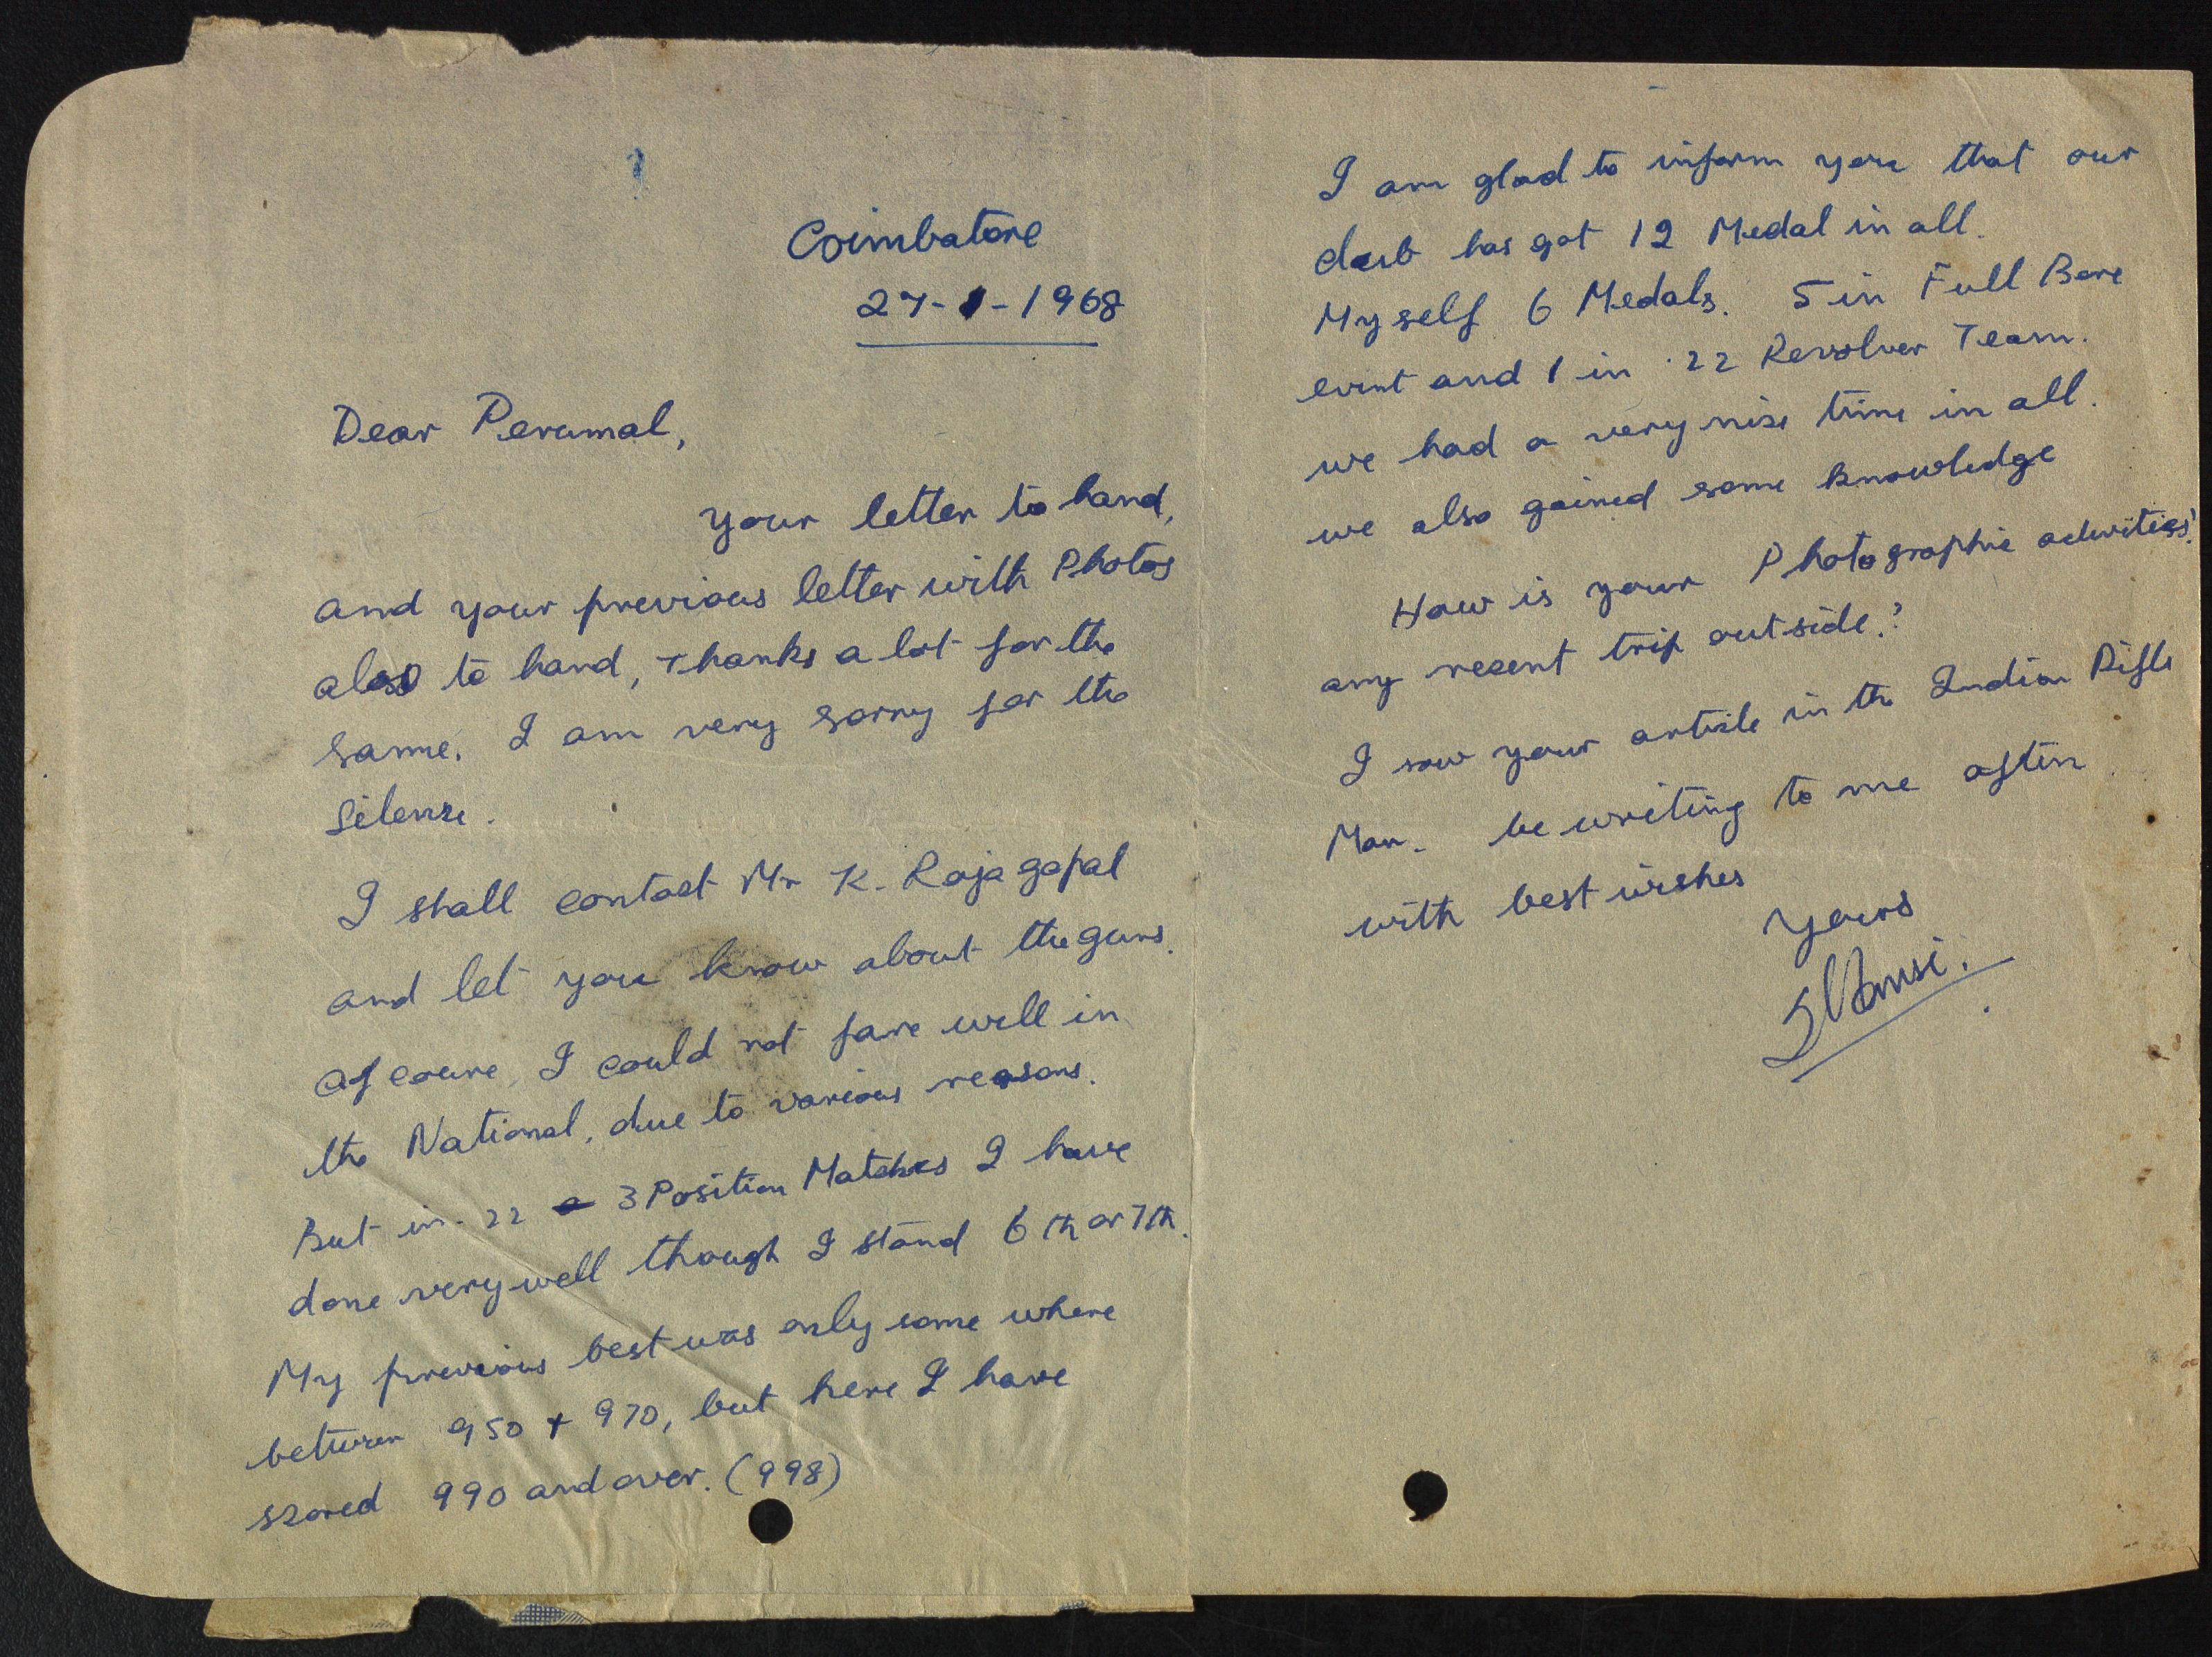 Coimbatore
27-1-1968
Dear Perumal,
your letter to hand,
and your previous letter with Photos
also to hand, Thanks a lot for the
same. I am very sorry for the
silense.
I shall contact Mr K. Rajagopal
and let you know about the guns.
Of coure, I could not fare well in
the National, due to various reasons.
But in .22 3 Position Matches I have
done very well though I stand 6th or 7th.
My previous best was only some where
between 950 + 970, but here I have
scored 990 and over. (998)
I am glad to inform you that our
club has got 12 Medal in all.
Myself 6 Medals. 5 in Full Bore
event and 1 in .22 Revolver Team.
we had a very nise time in all.
we also gained some knowledge
How is your Photographic activities?
any recent trip outside?
I saw your article in the Indian Rifle
Man. be writing to me often
with best wishes
yours